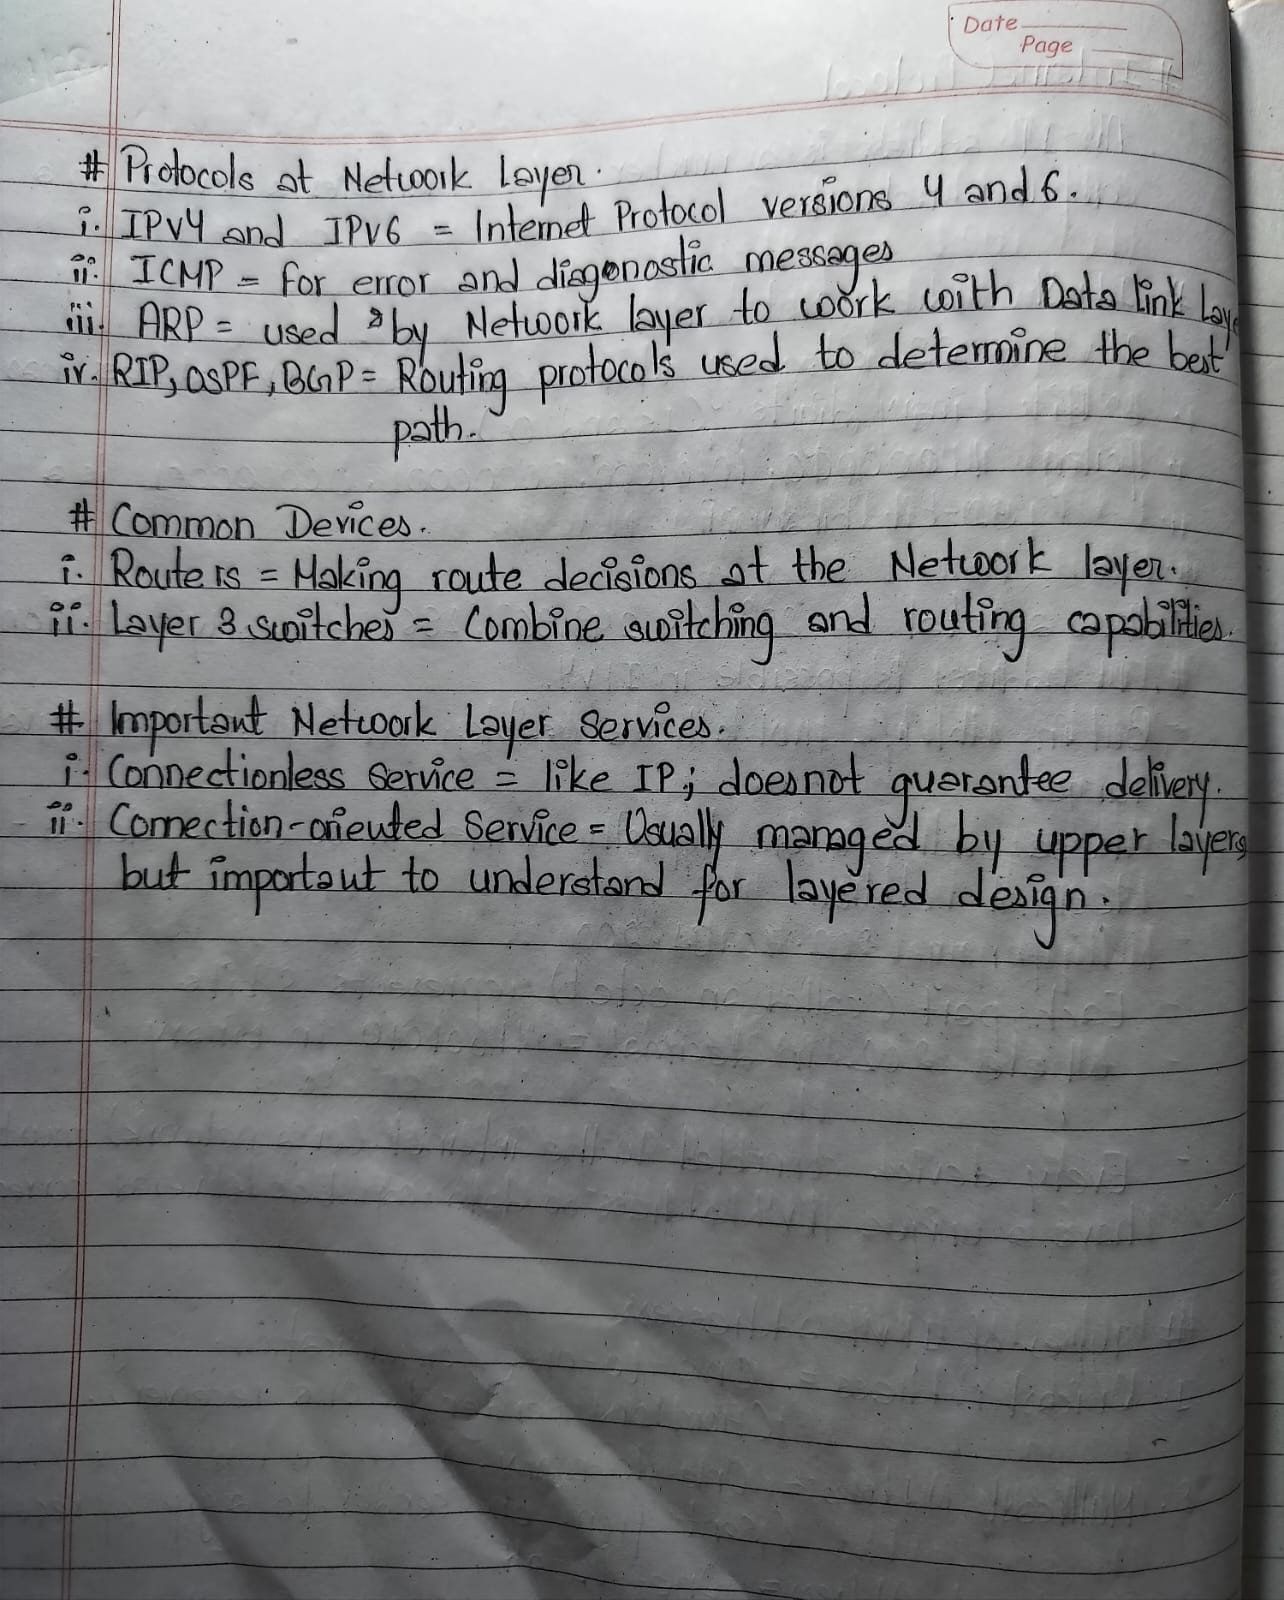 Date
Page
# Protocols at Network Layer.
i. IPV4 and IPV6 = Internet Protocol versions 4 and 6.
ii. ICMP = for error and diagonostic messages
iii. ARP = used by Network layer to work with Data link Laye
iv. RIP, OSPF, BGP = Routing protocols used to determine the best
path.
# Common Devices.
i. Routers = Making route decisions at the Network layer.
ii. Layer 3 switches = Combine switching and routing capabilities.
# Important Network Layer Services.
i. Connectionless Service = like IP; doesnot guarantee delivery.
ii. Connection-oriented Service = Usually managed by upper layers
but important to understand for layered design.